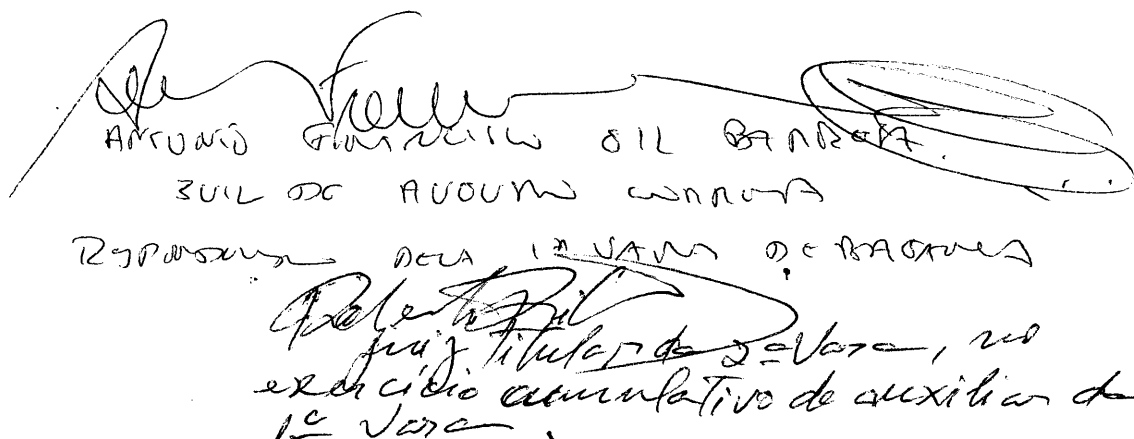 ANTONIO FRANCISCO GIL BARBOSA
JUIZ DE AUGUSTO CORREA
RESPONDENDO PELA 1ª VARA DE BRAGANÇA
Juiz Titular da 2ª Vara, no
exercício acumulativo de auxiliar da
1ª Vara.